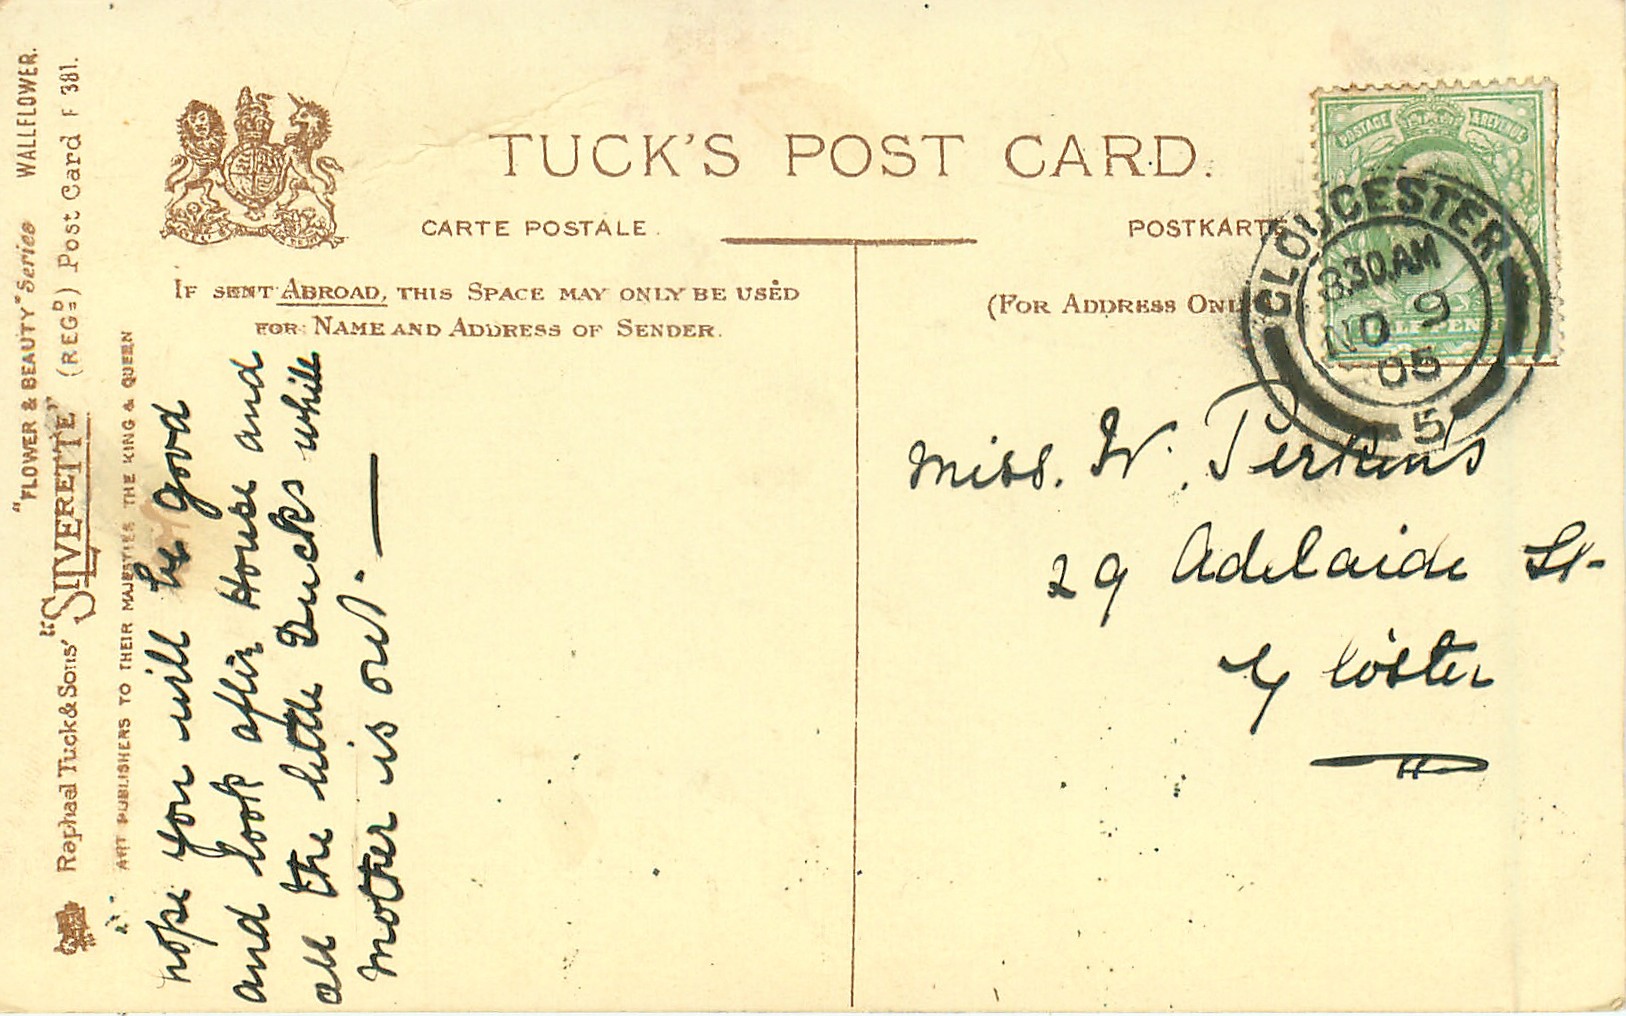 "FLOWER & BEAUTY" Series WALLFLOWER.
Raphael Tuck & Sons' "SILVERETTE" (REGD) Post Card F 381.
ART PUBLISHERS TO THEIR MAJESTIES THE KING & QUEEN
TUCK'S POST CARD.
CARTE POSTALE.
POSTKARTE
IF SENT ABROAD, THIS SPACE MAY ONLY BE USED
FOR NAME AND ADDRESS OF SENDER.
(FOR ADDRESS ONL
hope you will be good
and look after House and
all the little Ducks while
Mother is out. —
POSTAGE & REVENUE
GLOUCESTER
8.30 AM
NO 9
05
5
Miss. W. Perkins
29 Adelaide St-
Gloster